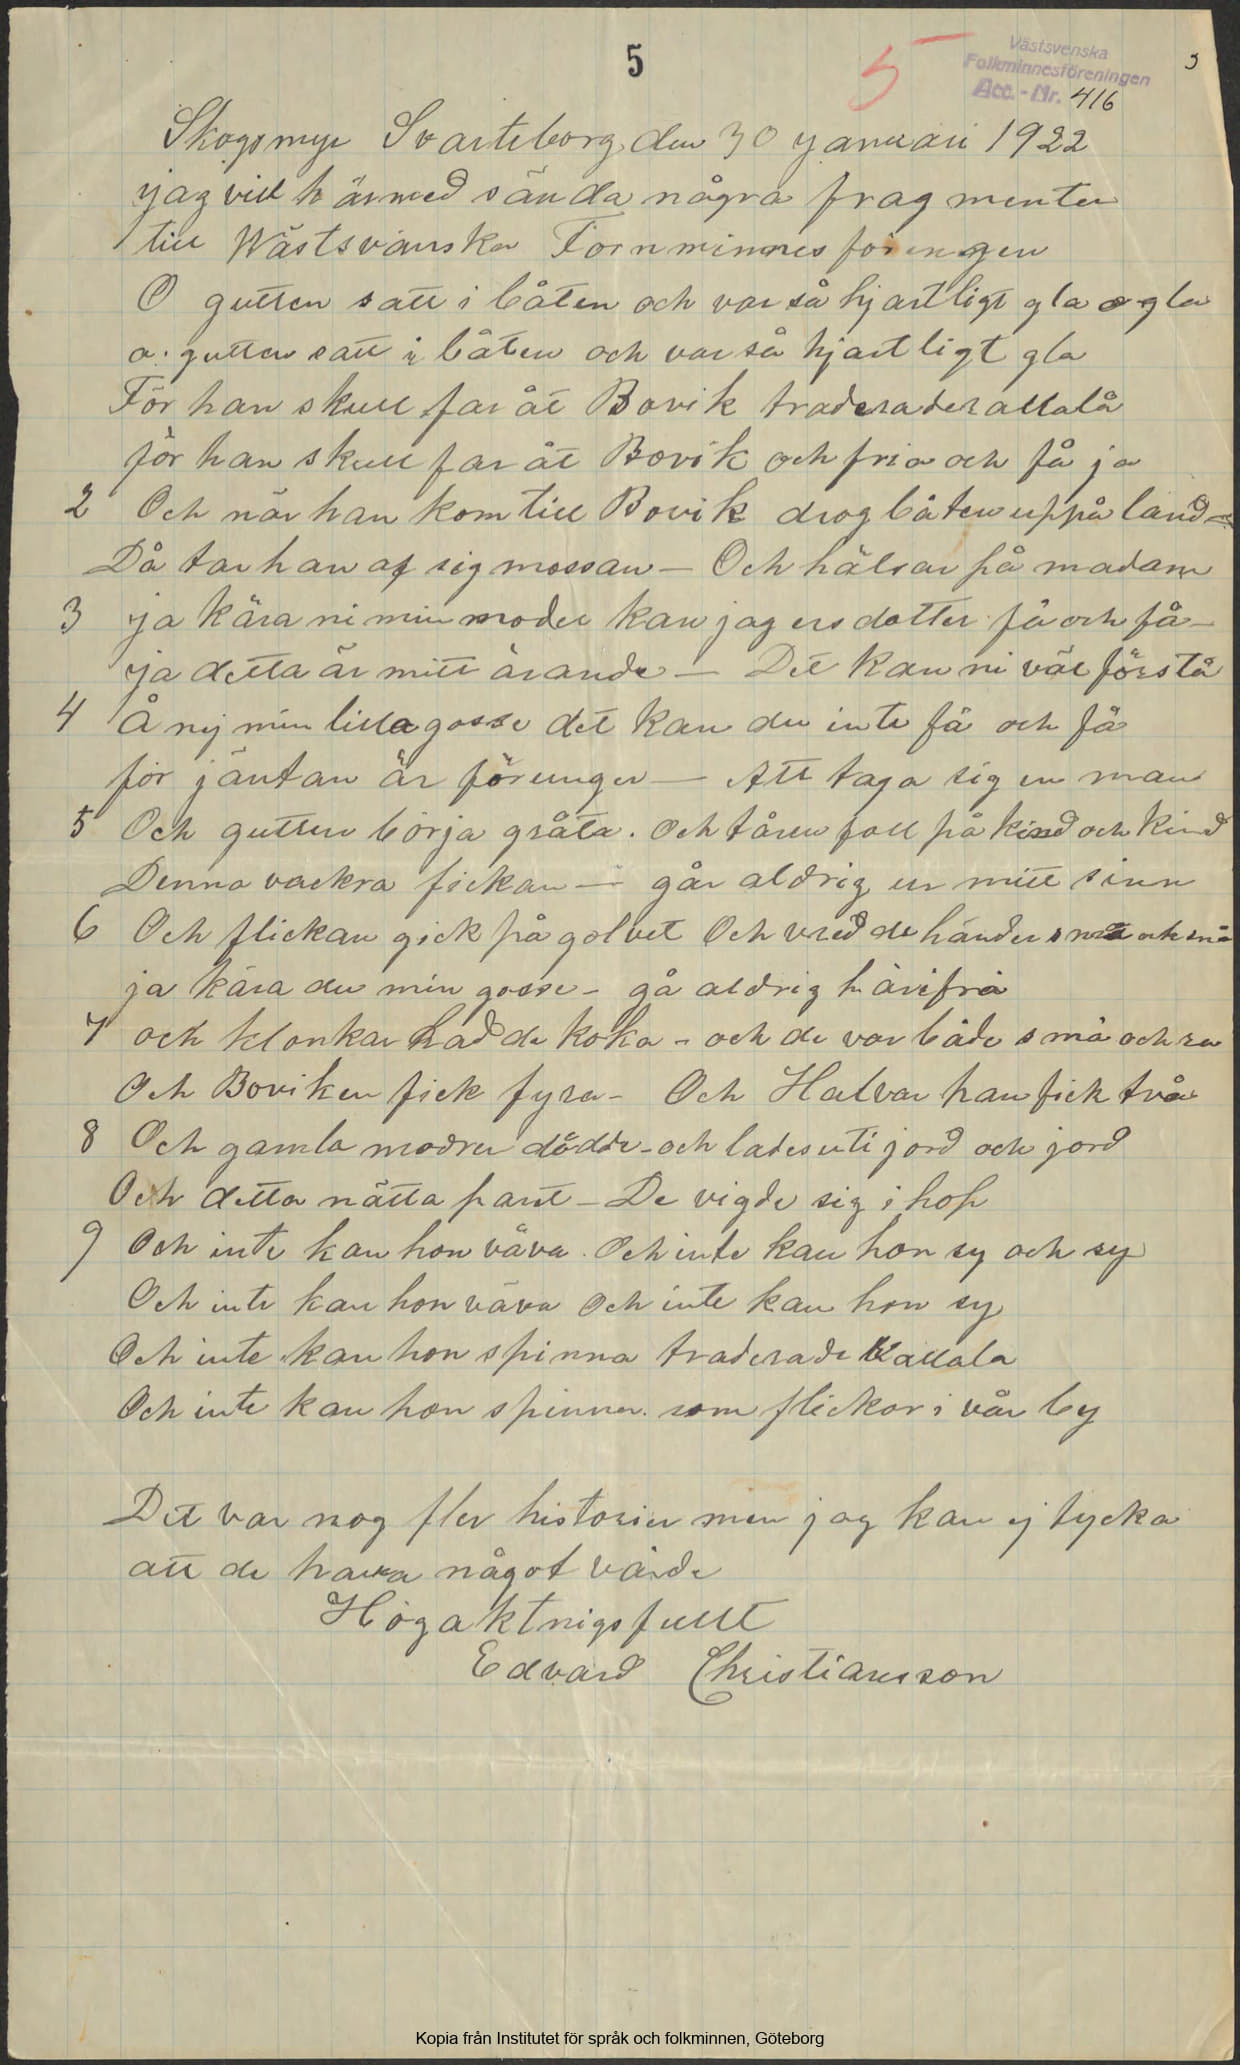 5
5
Västsvenska
Folkminnesföreningen
Acc.-Nr. 416
3
Skogsmyr Svarteborg den 30 januari 1922
jag vill härmed sända några fragmenter
till Wästsvänska Fornminnes förengen
O gutten satt i båten och var så hjartligt gla o gla
o. gutten satt i båten och var så hjartligt gla
För han skull far åt Bovik traderaderallalå
för han skull far åt Bovik och fria och få ja
2 Och när han kom till Bovik drog båten uppå land –
Då tar han af sig mossan – Och hälsar på madam
3 ja kära ni min moder kan jag ers dotter få och få –
ja detta är mitt ärande – Det kan ni väl förstå
4 Å nej min lilla gosse det kan du inte få och få
för jäntan är för unger – Att taga sig en man
5 Och gutten börja gråta. Och tåren foll på kind och kind
Denna vackra fickan – går aldrig ur mitt sinn
6 Och flickan gick på golvet Och vred de händer små och små
ja kära du min gosse – gå aldrig härifrå
7 och klonkar hadde koka – och de var både små och ra
Och Boviken fick fyra – Och Halvar han fick två
8 Och gamla modren dödde – och lades uti jord och jord
Och detta nätta part – De vigde sig i hop
9 Och inte kan hon väva. Och inte kan hon sy och sy
Och inte kan hon väva Och inte kan hon sy
Och inte kan hon spinna traderade rallala
Och inte kan hon spinna. som flickor i vår by
Det var nog fler historier men jag kan ej tycka
att de hava något värde
Högaktnigsfullt
Edvard Christiansson
Kopia från Institutet för språk och folkminnen, Göteborg